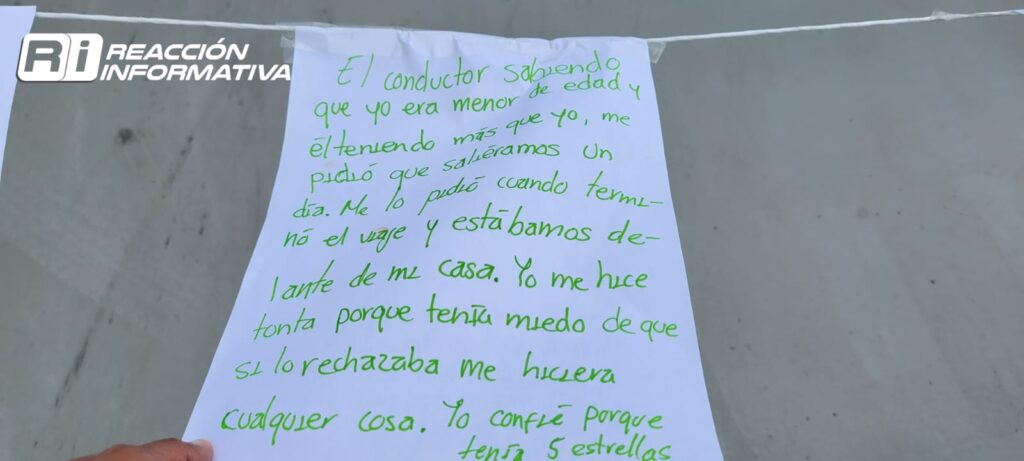 Ri REACCIÓN
INFORMATIVA
El conductor sabiendo
que yo era menor de edad y
él teniendo más que yo, me
pidió que saliéramos un
día. Me lo pidió cuando termi-
nó el viaje y estábamos de-
lante de mi casa. Yo me hice
tonta porque tenía miedo de que
si lo rechazaba me hiciera
cualquier cosa. Yo confié porque
tenía 5 estrellas